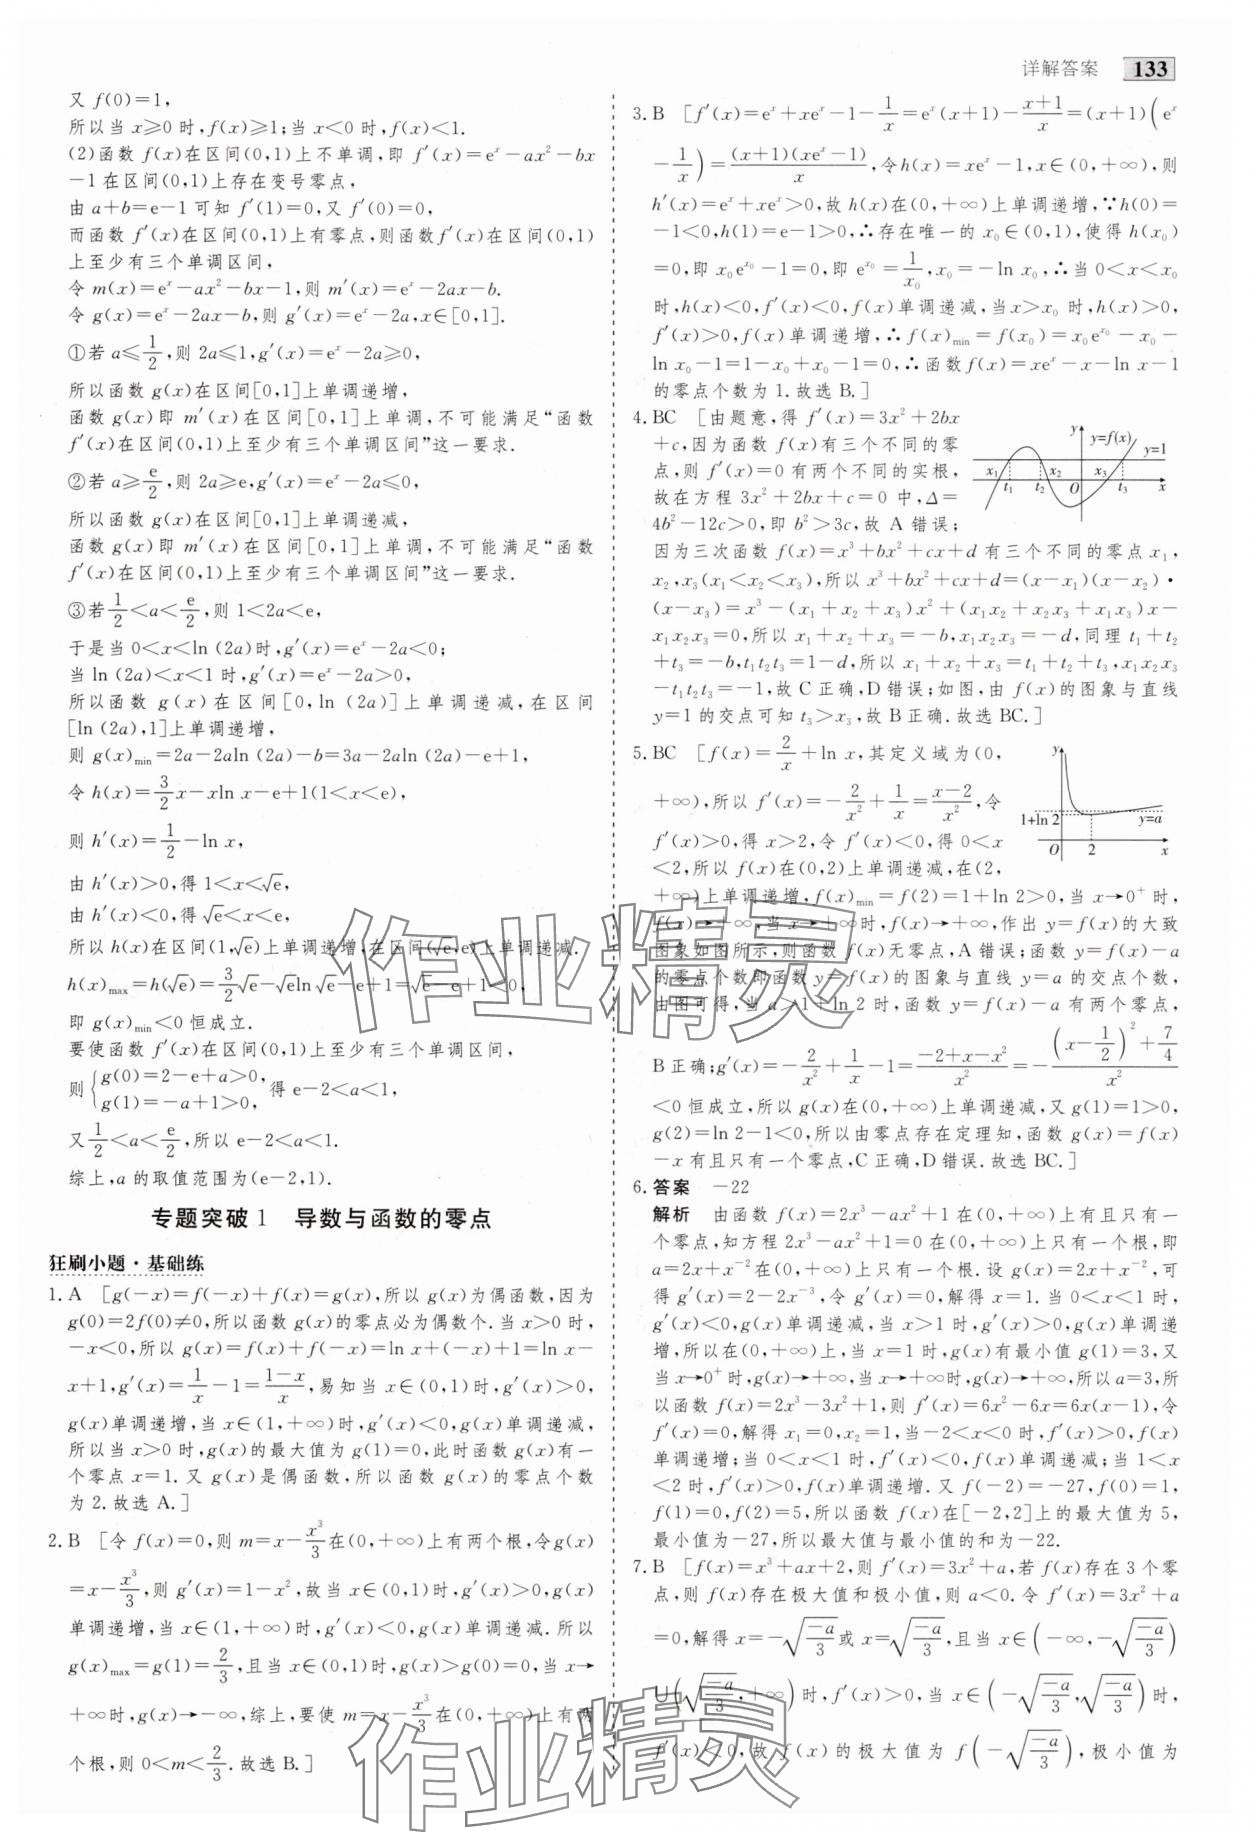 详解答案 133
又 f(0)=1,
所以当 x⩾0 时,f(x)⩾1;当 x<0 时,f(x)<1.
(2)函数 f(x)在区间(0,1)上不单调,即 f′(x)=eˣ-ax²-bx
-1在区间(0,1)上存在变号零点,
由 a+b=e-1 可知 f′(1)=0,又 f′(0)=0,
而函数 f′(x)在区间(0,1)上有零点,则函数f′(x)在区间(0,1)
上至少有三个单调区间,
令 m(x)=eˣ-ax²-bx-1,则 m′(x)=eˣ-2ax-b.
令 g(x)=eˣ-2ax-b,则 g′(x)=eˣ-2a,x∈[0,1].
①若 a⩽1/2,则 2a⩽1,g′(x)=eˣ-2a⩾0,
所以函数 g(x)在区间[0,1]上单调递增,
函数 g(x)即 m′(x)在区间[0,1]上单调,不可能满足“函数
f′(x)在区间(0,1)上至少有三个单调区间”这一要求.
②若 a⩾e/2,则 2a⩾e,g′(x)=eˣ-2a⩽0,
所以函数 g(x)在区间[0,1]上单调递减,
函数 g(x)即 m′(x)在区间[0,1]上单调,不可能满足“函数
f′(x)在区间(0,1)上至少有三个单调区间”这一要求.
③若1/2<a<e/2,则 1<2a<e,
于是当 0<x<ln (2a)时,g′(x)=eˣ-2a<0;
当 ln (2a)<x<1 时,g′(x)=eˣ-2a>0,
所以函数 g(x)在区间[0,ln (2a)]上单调递减,在区间
[ln (2a),1]上单调递增,
则 g(x)min=2a-2aln (2a)-b=3a-2aln (2a)-e+1,
令 h(x)=3/2x-xln x-e+1(1<x<e),
则 h′(x)=1/2-ln x,
由 h′(x)>0,得 1<x<√e,
由 h′(x)<0,得 √e<x<e,
所以 h(x)在区间(1,√e)上单调递增,在区间(√e,e)上单调递减.
h(x)max=h(√e)=3/2√e-√eln√e-e+1=√e-e+1<0,
即 g(x)min<0 恒成立.
要使函数 f′(x)在区间(0,1)上至少有三个单调区间,
则{g(0)=2-e+a>0, g(1)=-a+1>0,得 e-2<a<1,
又1/2<a<e/2,所以 e-2<a<1.
综上,a 的取值范围为(e-2,1).
专题突破 1 导数与函数的零点
狂刷小题·基础练
1. A [g(-x)=f(-x)+f(x)=g(x),所以 g(x)为偶函数,因为
g(0)=2f(0)≠0,所以函数 g(x)的零点必为偶数个.当 x>0 时,
-x<0,所以 g(x)=f(x)+f(-x)=ln x+(-x)+1=ln x-
x+1,g′(x)=1/x-1=(1-x)/x,易知当 x∈(0,1)时,g′(x)>0,
g(x)单调递增,当 x∈(1,+∞)时,g′(x)<0,g(x)单调递减,
所以当 x>0 时,g(x)的最大值为 g(1)=0,此时函数 g(x)有一
个零点 x=1.又 g(x)是偶函数,所以函数 g(x)的零点个数
为 2.故选 A.]
2. B [令 f(x)=0,则 m=x-x³/3在(0,+∞)上有两个根,令g(x)
=x-x³/3,则 g′(x)=1-x²,故当 x∈(0,1)时,g′(x)>0,g(x)
单调递增,当 x∈(1,+∞)时,g′(x)<0,g(x)单调递减.所以
g(x)max=g(1)=2/3,且当 x∈(0,1)时,g(x)>g(0)=0,当 x→
+∞时,g(x)→-∞,综上,要使 m=x-x³/3在(0,+∞)上有两
个根,则 0<m<2/3.故选 B.]
3. B [f′(x)=eˣ+xeˣ-1-1/x=eˣ(x+1)-(x+1)/x=(x+1)(eˣ
-1/x)=(x+1)(xeˣ-1)/x,令h(x)=xeˣ-1,x∈(0,+∞),则
h′(x)=eˣ+xeˣ>0,故 h(x)在(0,+∞)上单调递增,∵h(0)=
-1<0,h(1)=e-1>0,∴存在唯一的 x₀∈(0,1),使得 h(x₀)
=0,即 x₀e^x₀-1=0,即 e^x₀=1/x₀,x₀=-ln x₀,∴当 0<x<x₀
时,h(x)<0,f′(x)<0,f(x)单调递减,当x>x₀ 时,h(x)>0,
f′(x)>0,f(x)单调递增,∴f(x)min=f(x₀)=x₀e^x₀-x₀-
ln x₀-1=1-x₀+x₀-1=0,∴函数 f(x)=xeˣ-x-ln x-1
的零点个数为 1.故选 B.]
4. BC [由题意,得 f′(x)=3x²+2bx
+c,因为函数 f(x)有三个不同的零
点,则 f′(x)=0 有两个不同的实根,
故在方程 3x²+2bx+c=0 中,Δ=
4b²-12c>0,即 b²>3c,故 A 错误;
y y=f(x) y=1
x₁ x₂ x₃
t₁ t₂ O t₃ x
因为三次函数 f(x)=x³+bx²+cx+d 有三个不同的零点 x₁,
x₂,x₃(x₁<x₂<x₃),所以 x³+bx²+cx+d=(x-x₁)(x-x₂)·
(x-x₃)=x³-(x₁+x₂+x₃)x²+(x₁x₂+x₂x₃+x₁x₃)x-
x₁x₂x₃=0,所以 x₁+x₂+x₃=-b,x₁x₂x₃=-d,同理 t₁+t₂
+t₃=-b,t₁t₂t₃=1-d,所以 x₁+x₂+x₃=t₁+t₂+t₃,x₁x₂x₃
-t₁t₂t₃=-1,故 C 正确,D 错误;如图,由 f(x)的图象与直线
y=1 的交点可知 t₃>x₃,故 B 正确.故选 BC.]
5. BC [f(x)=2/x+ln x,其定义域为(0,
+∞),所以 f′(x)=-2/x²+1/x=(x-2)/x²,令
f′(x)>0,得 x>2,令 f′(x)<0,得 0<x
<2,所以 f(x)在(0,2)上单调递减,在(2,
y
1+ln 2 y=a
O 2 x
+∞)上单调递增,f(x)min=f(2)=1+ln 2>0,当 x→0⁺ 时,
f(x)→+∞,当 x→+∞时,f(x)→+∞,作出 y=f(x)的大致
图象如图所示,则函数 f(x)无零点,A 错误;函数 y=f(x)-a
的零点个数即函数 y=f(x)的图象与直线 y=a 的交点个数,
由图可得,当 a>1+ln 2 时,函数 y=f(x)-a 有两个零点,
B 正确;g′(x)=-2/x²+1/x-1=(-2+x-x²)/x²=-((x-1/2)²+7/4)/x²
<0 恒成立,所以 g(x)在(0,+∞)上单调递减,又 g(1)=1>0,
g(2)=ln 2-1<0,所以由零点存在定理知,函数 g(x)=f(x)
-x 有且只有一个零点,C 正确,D 错误.故选 BC.]
6. 答案 -22
解析 由函数 f(x)=2x³-ax²+1 在(0,+∞)上有且只有一
个零点,知方程 2x³-ax²+1=0 在(0,+∞)上有且只有一个根,即
a=2x+x⁻²在(0,+∞)上有且只有一个根.设 g(x)=2x+x⁻²,可
得 g′(x)=2-2x⁻³,令 g′(x)=0,解得 x=1.当 0<x<1 时,
g′(x)<0,g(x)单调递减,当 x>1 时,g′(x)>0,g(x)单调递
增,所以在(0,+∞)上,当 x=1 时,g(x)有最小值 g(1)=3,又
当 x→0⁺时,g(x)→+∞,当 x→+∞时,g(x)→+∞,所以 a=3,所
以函数 f(x)=2x³-3x²+1,则 f′(x)=6x²-6x=6x(x-1),令
f′(x)=0,解得 x₁=0,x₂=1,当-2<x<0 时,f′(x)>0,f(x)
单调递增;当 0<x<1 时,f′(x)<0,f(x)单调递减;当 1<x
<2 时,f′(x)>0,f(x)单调递增.又 f(-2)=-27,f(0)=1,
f(1)=0,f(2)=5,所以函数 f(x)在[-2,2]上的最大值为 5,
最小值为-27,所以最大值与最小值的和为-22.
7. B [f(x)=x³+ax+2,则 f′(x)=3x²+a,若 f(x)存在 3 个零
点,则 f(x)存在极大值和极小值,则 a<0.令 f′(x)=3x²+a
=0,解得 x=-√(-a/3)或 x=√(-a/3),且当 x∈(-∞,-√(-a/3))
∪(√(-a/3),+∞)时,f′(x)>0,当 x∈(-√(-a/3),√(-a/3))时,
f′(x)<0,故 f(x)的极大值为 f(-√(-a/3)),极小值为
作业精灵
作业精灵